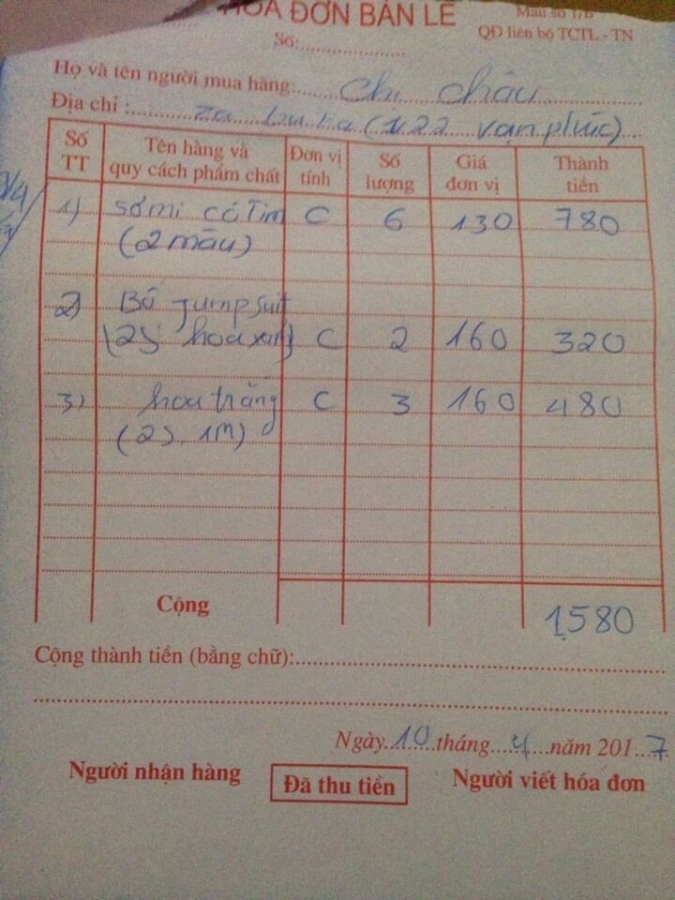 HÓA ĐƠN BÁN LẺ
Mẫu số 1/B
QĐ liên bộ TCTL - TN
Số:
Họ và tên người mua hàng: Chị Châu
Địa chỉ : (122 vạn phúc)
Số TT Tên hàng và quy cách phẩm chất Đơn vị tính Số lượng Giá đơn vị Thành tiền
1) sơmi cổ Tim C 6 130 780
(2 màu)
2) Bộ Jumpsuit
(2S hoa xanh) C 2 160 320
3) hoa trắng C 3 160 480
(2S. 1M)
Cộng 1.580
Cộng thành tiền (bằng chữ):
Ngày 10 tháng 4 năm 2017
Người nhận hàng Đã thu tiền Người viết hóa đơn